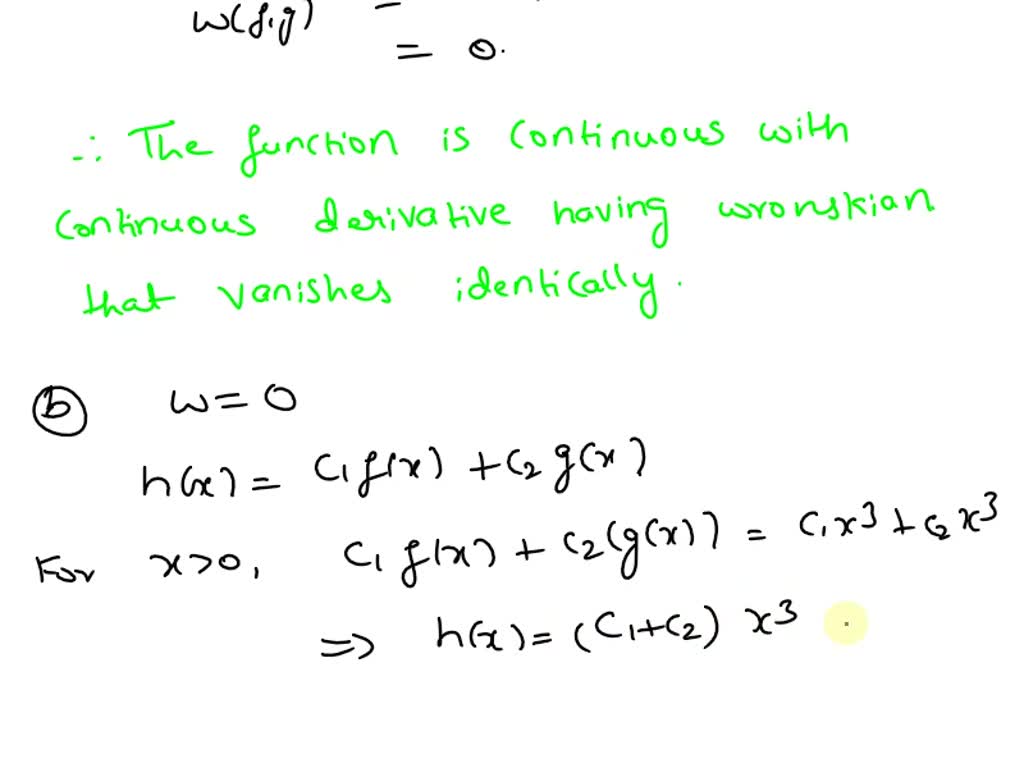 w(f,g) =
= 0.
∴ The function is continuous with
continuous derivative having wronskian
that vanishes identically.
ⓑ w = 0
h(x) = C₁f(x) + C₂ g(x)
For x>0, C₁ f(x) + C₂(g(x)) = C₁x³ + C₂x³
⇒ h(x) = (C₁+C₂) x³